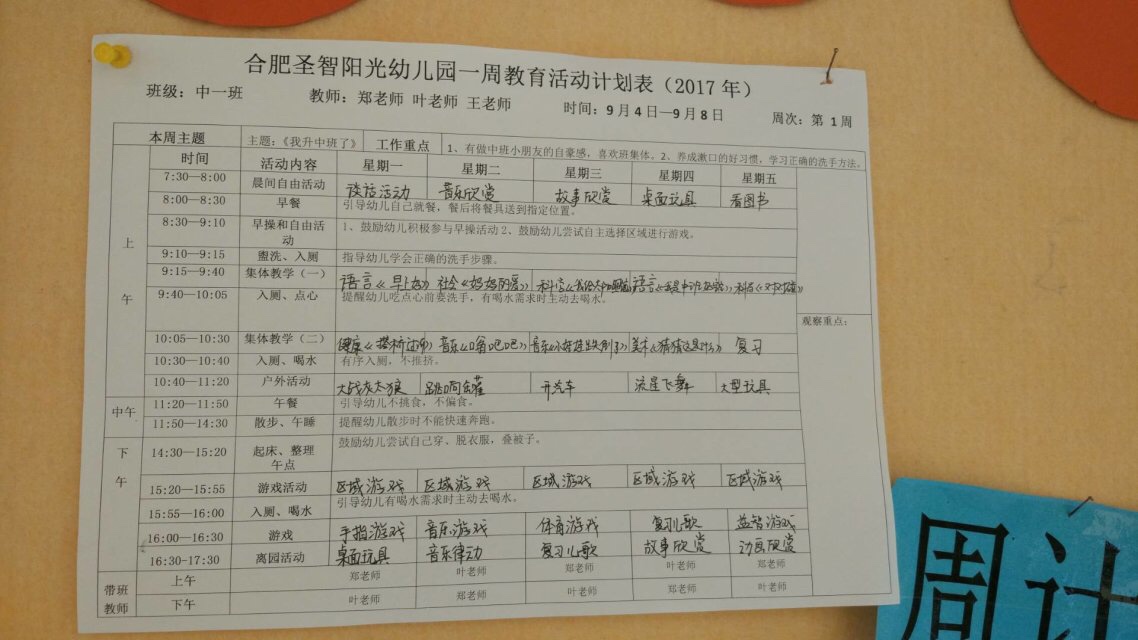 合肥圣智阳光幼儿园一周教育活动计划表（2017年）
班级：中一班 教师：郑老师 叶老师 王老师 时间：9月4日—9月8日 周次：第 1 周
本周主题 主题：《我升中班了》 工作重点 1、有做中班小朋友的自豪感，喜欢班集体。2、养成漱口的好习惯，学习正确的洗手方法。
时间 活动内容 星期一 星期二 星期三 星期四 星期五
7:30—8:00 晨间自由活动 谈话活动 音乐欣赏 故事欣赏 桌面玩具 看图书
8:00—8:30 早餐 引导幼儿自己就餐，餐后将餐具送到指定位置。
8:30—9:10 早操和自由活动 1、鼓励幼儿积极参与早操活动 2、鼓励幼儿尝试自主选择区域进行游戏。
上午
9:10—9:15 盥洗、入厕 指导幼儿学会正确的洗手步骤。
9:15—9:40 集体教学（一） 语言《早上好》 社会 语言
9:40—10:05 入厕、点心 提醒幼儿吃点心前要洗手，有喝水需求时主动去喝水。
观察重点：
10:05—10:30 集体教学（二） 健康 音乐 音乐 美术 复习
10:30—10:40 入厕、喝水 有序入厕，不推挤。
10:40—11:20 户外活动 大战灰太狼 开汽车 流星飞舞 大型玩具
中午 11:20—11:50 午餐 引导幼儿不挑食，不偏食。
11:50—14:30 散步、午睡 提醒幼儿散步时不能快速奔跑。
下午
14:30—15:20 起床、整理午点 鼓励幼儿尝试自己穿、脱衣服，叠被子。
15:20—15:55 游戏活动 区域游戏 区域游戏 区域游戏 区域游戏 区域游戏
15:55—16:00 入厕、喝水 引导幼儿有喝水需求时主动去喝水。
16:00—16:30 游戏 手指游戏 音乐游戏 体育游戏 复习儿歌 益智游戏
16:30-17:30 离园活动 桌面玩具 音乐律动 复习儿歌 故事欣赏 动画欣赏
带班教师 上午 郑老师 叶老师 郑老师 叶老师 郑老师
下午 叶老师 郑老师 叶老师 郑老师 叶老师
周计